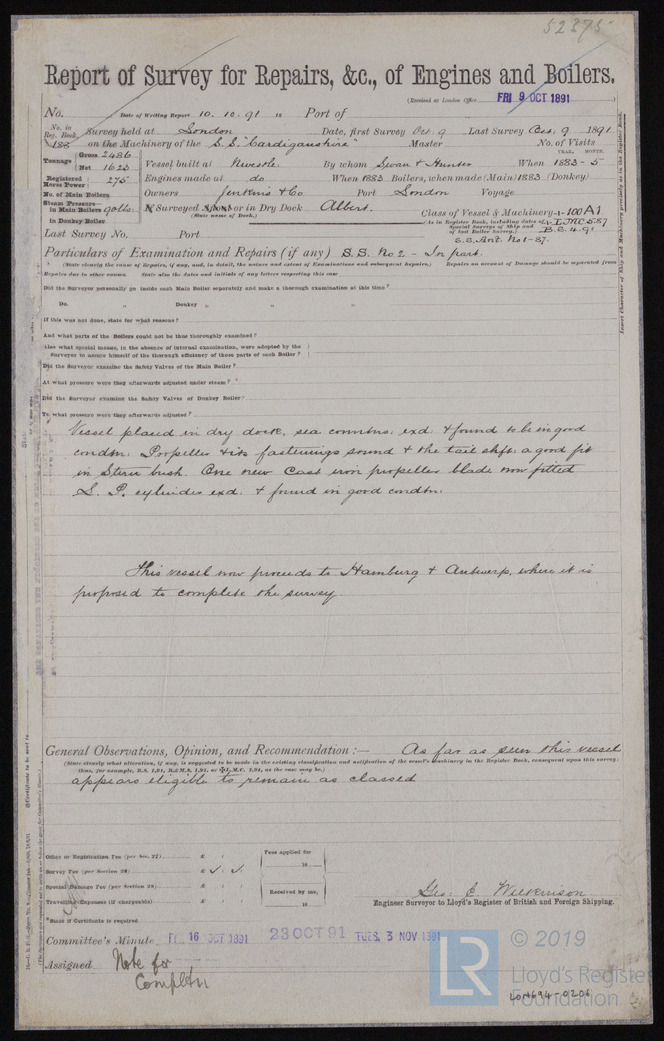 52375
Report of Survey for Repairs, &c., of Engines and Boilers.
(Received at London Office FRI 9 OCT 1891 )
No. Date of Writing Report 10. 10. 91 18 Port of
No. in Reg. Book. Survey held at London Date, first Survey Oct. 9 Last Survey Oct. 9 1891
188 on the Machinery of the S.S. "Cardiganshire" Master No. of Visits
Tonnage { Gross 2486 Net 1623
YEAR. MONTH.
Vessel built at Nwcstle. By whom Swan & Hunter When 1883-5
Registered Horse Power 275 Engines made at do When 1883 Boilers, when made (Main) 1883 (Donkey)
No. of Main Boilers Owners Jenkins & Co Port London Voyage
Steam Pressure in Main Boilers 90 lbs. If Surveyed Afloat or in Dry Dock Albert.
(State name of Dock.)
in Donkey Boiler
Class of Vessel & Machinery 100A1
As in Register Book, including dates of Special Surveys of Ship and of last Boiler Survey.) LMC 5.87
B.S. 4.91
S.S. Ant. No 1-87.
Last Survey No. Port
Particulars of Examination and Repairs (if any) S.S. No 2 - In part.
(State clearly the cause of Repairs, if any, and, in detail, the nature and extent of Examinations and subsequent Repairs.) Repairs on account of Damage should be separated from
Repairs due to other causes. State also the dates and initials of any letters respecting this case
Did the Surveyor personally go inside each Main Boiler separately and make a thorough examination at this time?
Do. " Donkey " " "
If this was not done, state for what reasons?
And what parts of the Boilers could not be thus thoroughly examined?
Also what special means, in the absence of internal examination, were adopted by the
Surveyor to assure himself of the thorough efficiency of those parts of each Boiler?
Did the Surveyor examine the Safety Valves of the Main Boiler?
At what pressure were they afterwards adjusted under steam?
Did the Surveyor examine the Safety Valves of Donkey Boiler?
To what pressure were they afterwards adjusted?
Vessel placed in dry dock, sea conntns: exd: & found to be in good
condtn: Propeller & its fastenings sound & the tail shft: a good fit
in Stern bush. One new Cast iron propeller blade now fitted
L. P. cylinder exd: & found in good condtn:
This vessel now proceeds to Hamburg & Antwerp, where it is
proposed to complete the survey.
General Observations, Opinion, and Recommendation :— As far as seen this vessel
(State clearly what alteration, if any, is suggested to be made in the existing classification and notification of the vessel's machinery in the Register Book, consequent upon this survey:
thus, for example, B.S. 1.91, B.&M.S. 1.91, or L.M.C. 1.91, as the case may be.)
appears eligible to remain as classed
Office or Registration Fee (per Sec. 27) £ : :
Survey Fee (per Section 28) £ : :
Special Damage Fee (per Section 28) £ : :
Travelling Expenses (if chargeable) £ : :
Fees applied for
18
Received by me,
18
Geo: E Wilkinson
Engineer Surveyor to Lloyd's Register of British and Foreign Shipping.
*State if Certificate is required
Committee's Minute 16 OCT 1891 23 OCT 91 TUES. 3 NOV 1891
Assigned Note for
Completn
LR
© 2019
Lloyd's Register
Foundation
LOR1694-0206